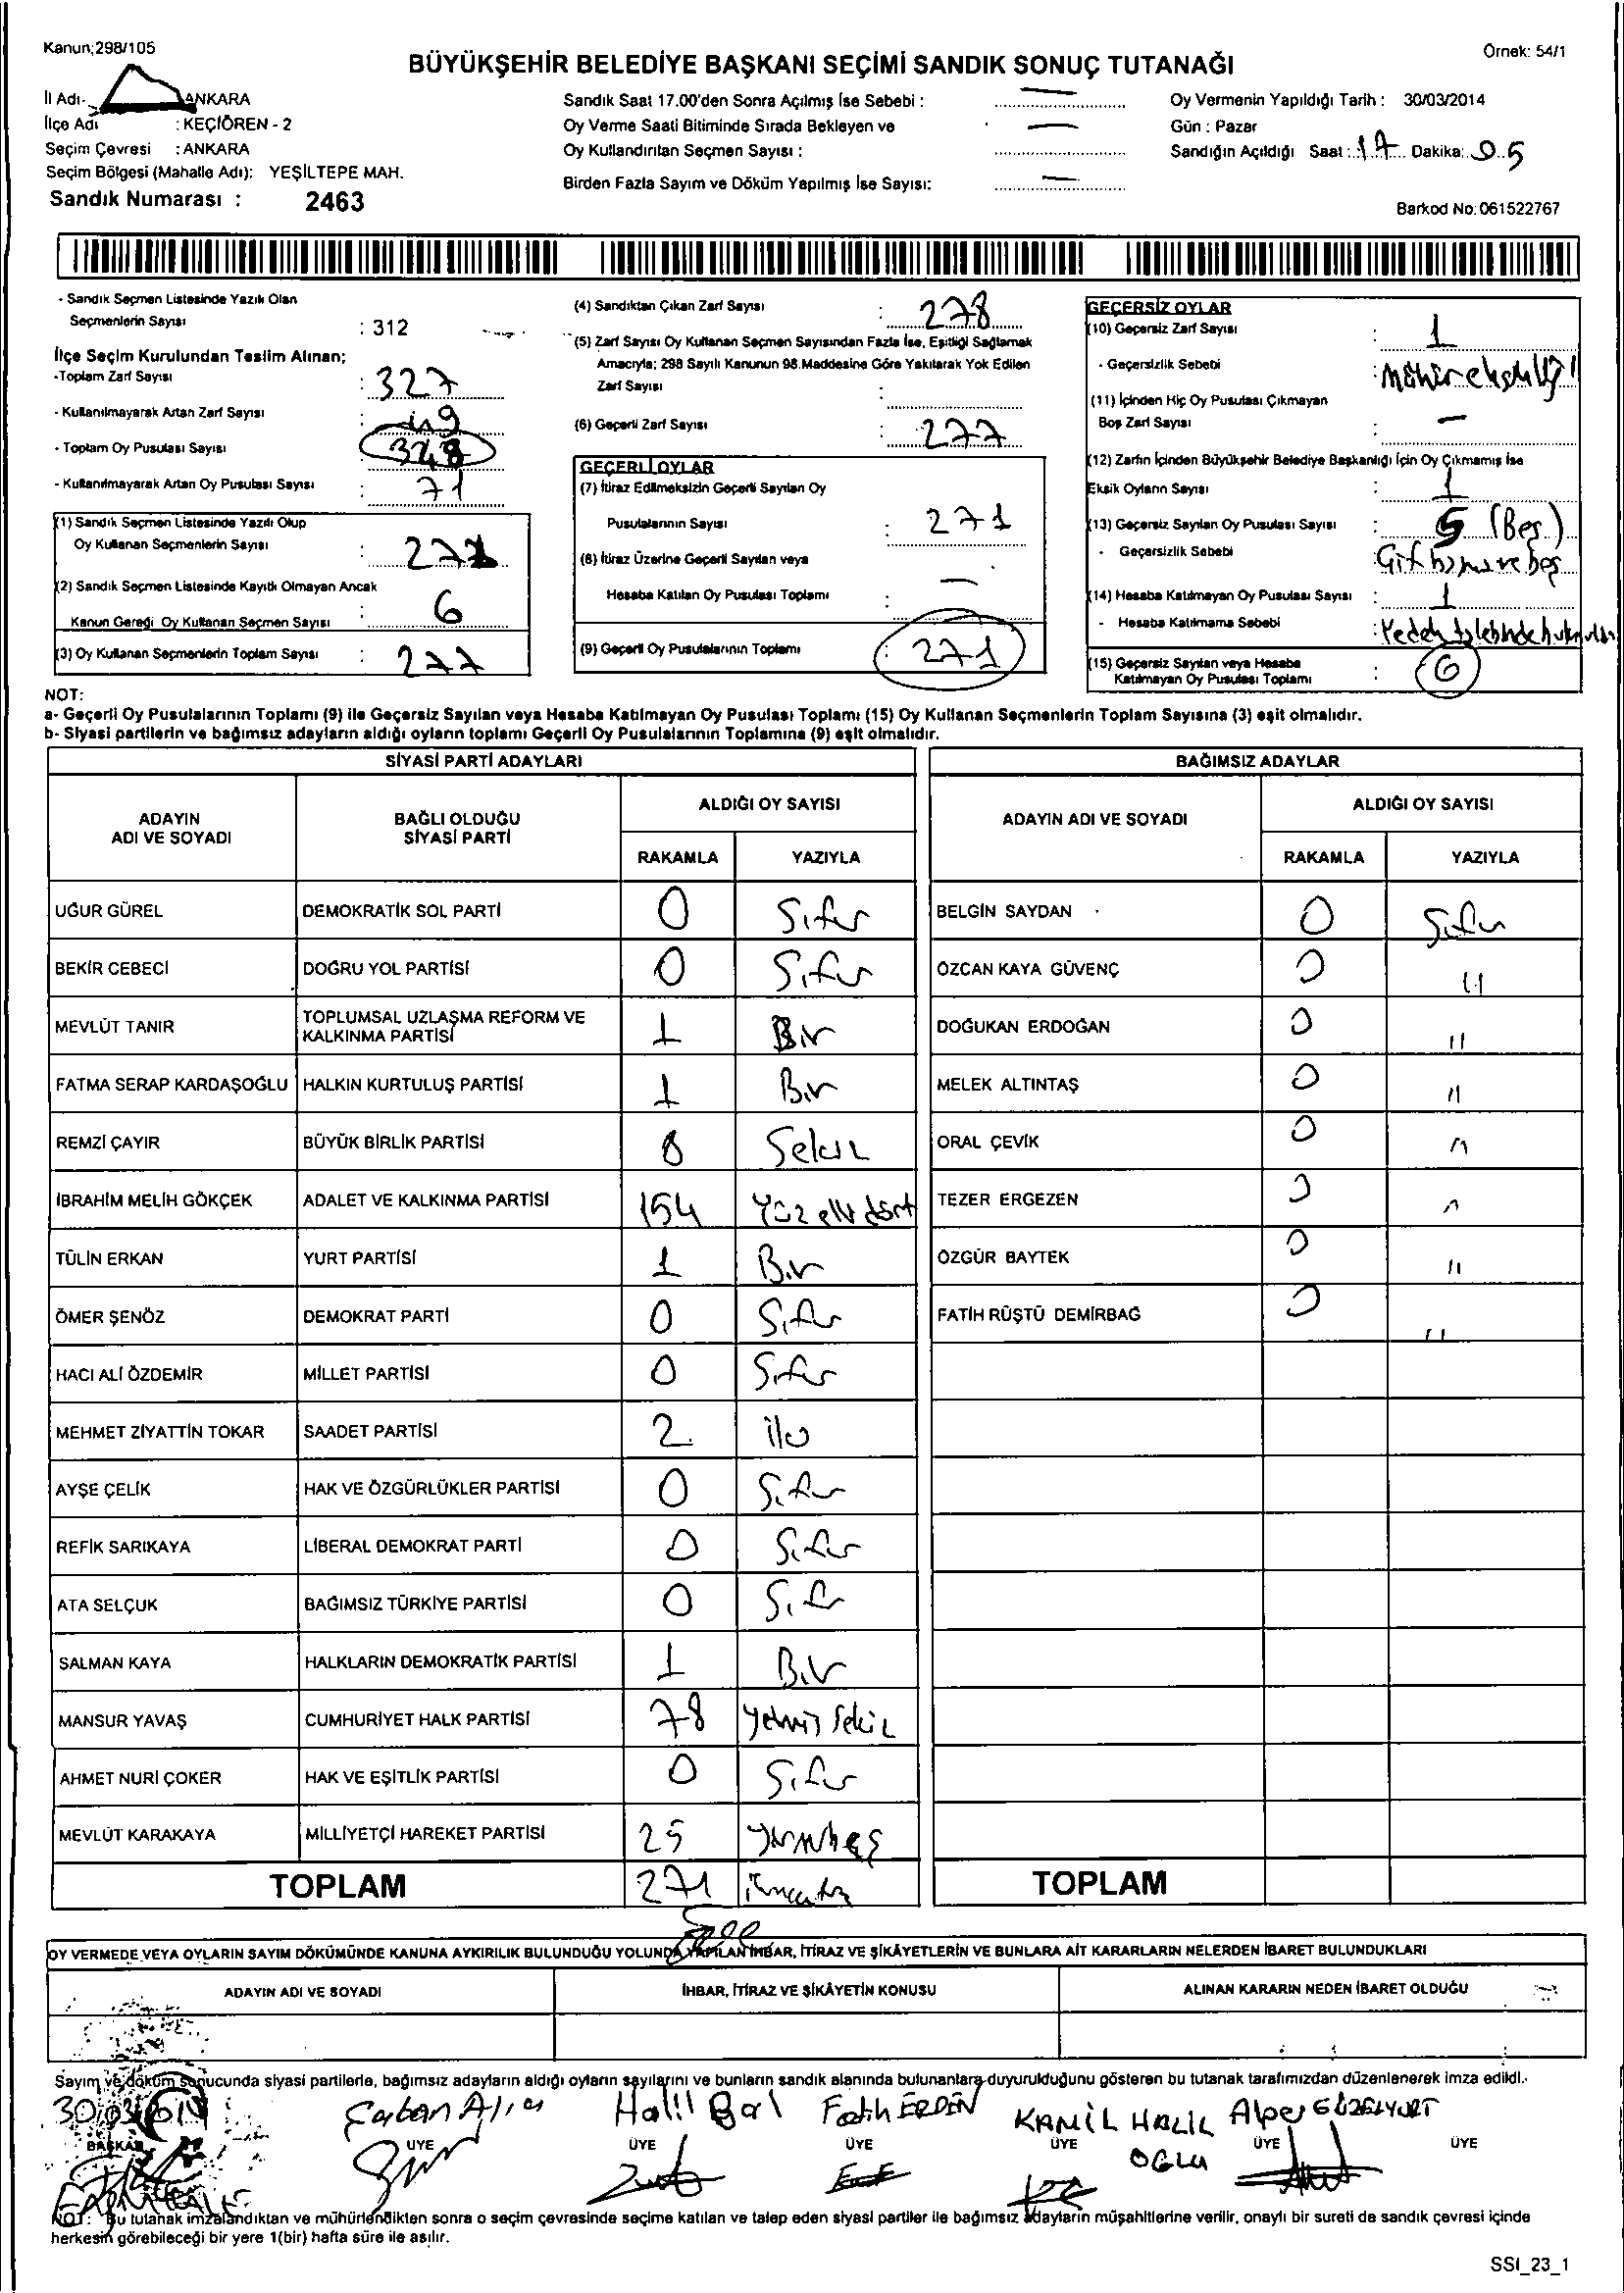 Kanun;298/105
Örnek: 54/1
BÜYÜKŞEHİR BELEDİYE BAŞKANI SEÇİMİ SANDIK SONUÇ TUTANAĞI
İl Adı- ANKARA
İlçe Adı : KEÇİÖREN - 2
Seçim Çevresi : ANKARA
Seçim Bölgesi (Mahalle Adı): YEŞİLTEPE MAH.
Sandık Numarası : 2463
Sandık Saat 17.00'den Sonra Açılmış İse Sebebi : —
Oy Verme Saati Bitiminde Sırada Bekleyen ve
Oy Kullandırılan Seçmen Sayısı : —
Birden Fazla Sayım ve Döküm Yapılmış İse Sayısı: —
Oy Vermenin Yapıldığı Tarih : 30/03/2014
Gün : Pazar
Sandığın Açıldığı Saat : 17 Dakika: 05
Barkod No: 061522767
- Sandık Seçmen Listesinde Yazılı Olan
Seçmenlerin Sayısı : 312
İlçe Seçim Kurulundan Teslim Alınan;
-Toplam Zarf Sayısı : 327
- Kullanılmayarak Artan Zarf Sayısı
- Toplam Oy Pusulası Sayısı 348
- Kullanılmayarak Artan Oy Pusulası Sayısı : 71
(1) Sandık Seçmen Listesinde Yazılı Olup
Oy Kullanan Seçmenlerin Sayısı : 271
(2) Sandık Seçmen Listesinde Kayıtlı Olmayan Ancak
Kanun Gereği Oy Kullanan Seçmen Sayısı : 6
(3) Oy Kullanan Seçmenlerin Toplam Sayısı : 277
(4) Sandıktan Çıkan Zarf Sayısı : 278
(5) Zarf Sayısı Oy Kullanan Seçmen Sayısından Fazla İse, Eşitliği Sağlamak
Amacıyla; 298 Sayılı Kanunun 98.Maddesine Göre Yakılarak Yok Edilen
Zarf Sayısı :
(6) Geçerli Zarf Sayısı : 277
GEÇERLİ OYLAR
(7) İtiraz Edilmeksizin Geçerli Sayılan Oy
Pusulalarının Sayısı : 271
(8) İtiraz Üzerine Geçerli Sayılan veya
Hesaba Katılan Oy Pusulası Toplamı : —
(9) Geçerli Oy Pusulalarının Toplamı : 271
GEÇERSİZ OYLAR
(10) Geçersiz Zarf Sayısı : 1
- Geçersizlik Sebebi : Mühür eksikliği
(11) İçinden Hiç Oy Pusulası Çıkmayan
Boş Zarf Sayısı : —
(12) Zarfın İçinden Büyükşehir Belediye Başkanlığı İçin Oy Çıkmamış İse
Eksik Oyların Sayısı : 1
(13) Geçersiz Sayılan Oy Pusulası Sayısı : 5 (Beş)
- Geçersizlik Sebebi : Çift
(14) Hesaba Katılmayan Oy Pusulası Sayısı : 1
- Hesaba Katılmama Sebebi :
(15) Geçersiz Sayılan veya Hesaba
Katılmayan Oy Pusulası Toplamı : 6
NOT:
a- Geçerli Oy Pusulalarının Toplamı (9) ile Geçersiz Sayılan veya Hesaba Katılmayan Oy Pusulası Toplamı (15) Oy Kullanan Seçmenlerin Toplam Sayısına (3) eşit olmalıdır.
b- Siyasi partilerin ve bağımsız adayların aldığı oyların toplamı Geçerli Oy Pusulalarının Toplamına (9) eşit olmalıdır.
SİYASİ PARTİ ADAYLARI
ADAYIN ADI VE SOYADI BAĞLI OLDUĞU SİYASİ PARTİ ALDIĞI OY SAYISI
RAKAMLA YAZIYLA
UĞUR GÜREL DEMOKRATİK SOL PARTİ 0 Sıfır
BEKİR CEBECİ DOĞRU YOL PARTİSİ 0 Sıfır
MEVLÜT TANIR TOPLUMSAL UZLAŞMA REFORM VE KALKINMA PARTİSİ 1 Bir
FATMA SERAP KARDAŞOĞLU HALKIN KURTULUŞ PARTİSİ 1 Bir
REMZİ ÇAYIR BÜYÜK BİRLİK PARTİSİ 8 Sekiz
İBRAHİM MELİH GÖKÇEK ADALET VE KALKINMA PARTİSİ 154 Yüz elli dört
TÜLİN ERKAN YURT PARTİSİ 1 Bir
ÖMER ŞENÖZ DEMOKRAT PARTİ 0 Sıfır
HACI ALİ ÖZDEMİR MİLLET PARTİSİ 0 Sıfır
MEHMET ZİYATTİN TOKAR SAADET PARTİSİ 2 iki
AYŞE ÇELİK HAK VE ÖZGÜRLÜKLER PARTİSİ 0 Sıfır
REFİK SARIKAYA LİBERAL DEMOKRAT PARTİ 0 Sıfır
ATA SELÇUK BAĞIMSIZ TÜRKİYE PARTİSİ 0 Sıfır
SALMAN KAYA HALKLARIN DEMOKRATİK PARTİSİ 1 Bir
MANSUR YAVAŞ CUMHURİYET HALK PARTİSİ 78 Yetmiş Sekiz
AHMET NURİ ÇOKER HAK VE EŞİTLİK PARTİSİ 0 Sıfır
MEVLÜT KARAKAYA MİLLİYETÇİ HAREKET PARTİSİ 25 Yirmibeş
TOPLAM 271
BAĞIMSIZ ADAYLAR
ADAYIN ADI VE SOYADI ALDIĞI OY SAYISI
RAKAMLA YAZIYLA
BELGİN SAYDAN 0 Sıfır
ÖZCAN KAYA GÜVENÇ 0 "
DOĞUKAN ERDOĞAN 0 "
MELEK ALTINTAŞ 0 "
ORAL ÇEVİK 0 "
TEZER ERGEZEN 0 "
ÖZGÜR BAYTEK 0 "
FATİH RÜŞTÜ DEMİRBAĞ 0 "
TOPLAM
OY VERMEDE VEYA OYLARIN SAYIM DÖKÜMÜNDE KANUNA AYKIRILIK BULUNDUĞU YOLUNDA YAPILAN İHBAR, İTİRAZ VE ŞİKÂYETLERİN VE BUNLARA AİT KARARLARIN NELERDEN İBARET BULUNDUKLARI
ADAYIN ADI VE SOYADI İHBAR, İTİRAZ VE ŞİKÂYETİN KONUSU ALINAN KARARIN NEDEN İBARET OLDUĞU
Sayım ve döküm sonucunda siyasi partilerle, bağımsız adayların aldığı oyların sayılarını ve bunların sandık alanında bulunanlara duyurulduğunu gösteren bu tutanak tarafımızdan düzenlenerek imza edildi.
30.03.2014 Halil Bal Fatih ERDEN KAMİL HALİL OĞLU Alper GÜZELYURT
BAŞKAN ÜYE ÜYE ÜYE ÜYE ÜYE ÜYE
NOT: Bu tutanak imzalandıktan ve mühürlendikten sonra o seçim çevresinde seçime katılan ve talep eden siyasi partiler ile bağımsız adayların müşahitlerine verilir, onaylı bir sureti de sandık çevresi içinde
herkesin görebileceği bir yere 1(bir) hafta süre ile asılır.
SSI_23_1